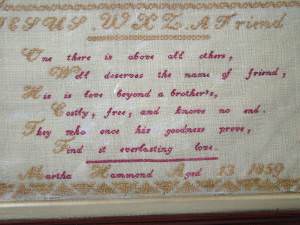 JESUS . W X Z . A Friend
One there is above all others,
Well deserves the name of friend,
His is love beyond a brother's,
Costly, free, and knows no end.
They who once his goodness prove,
Find it everlasting love.
Martha Hammond Aged 13 1859